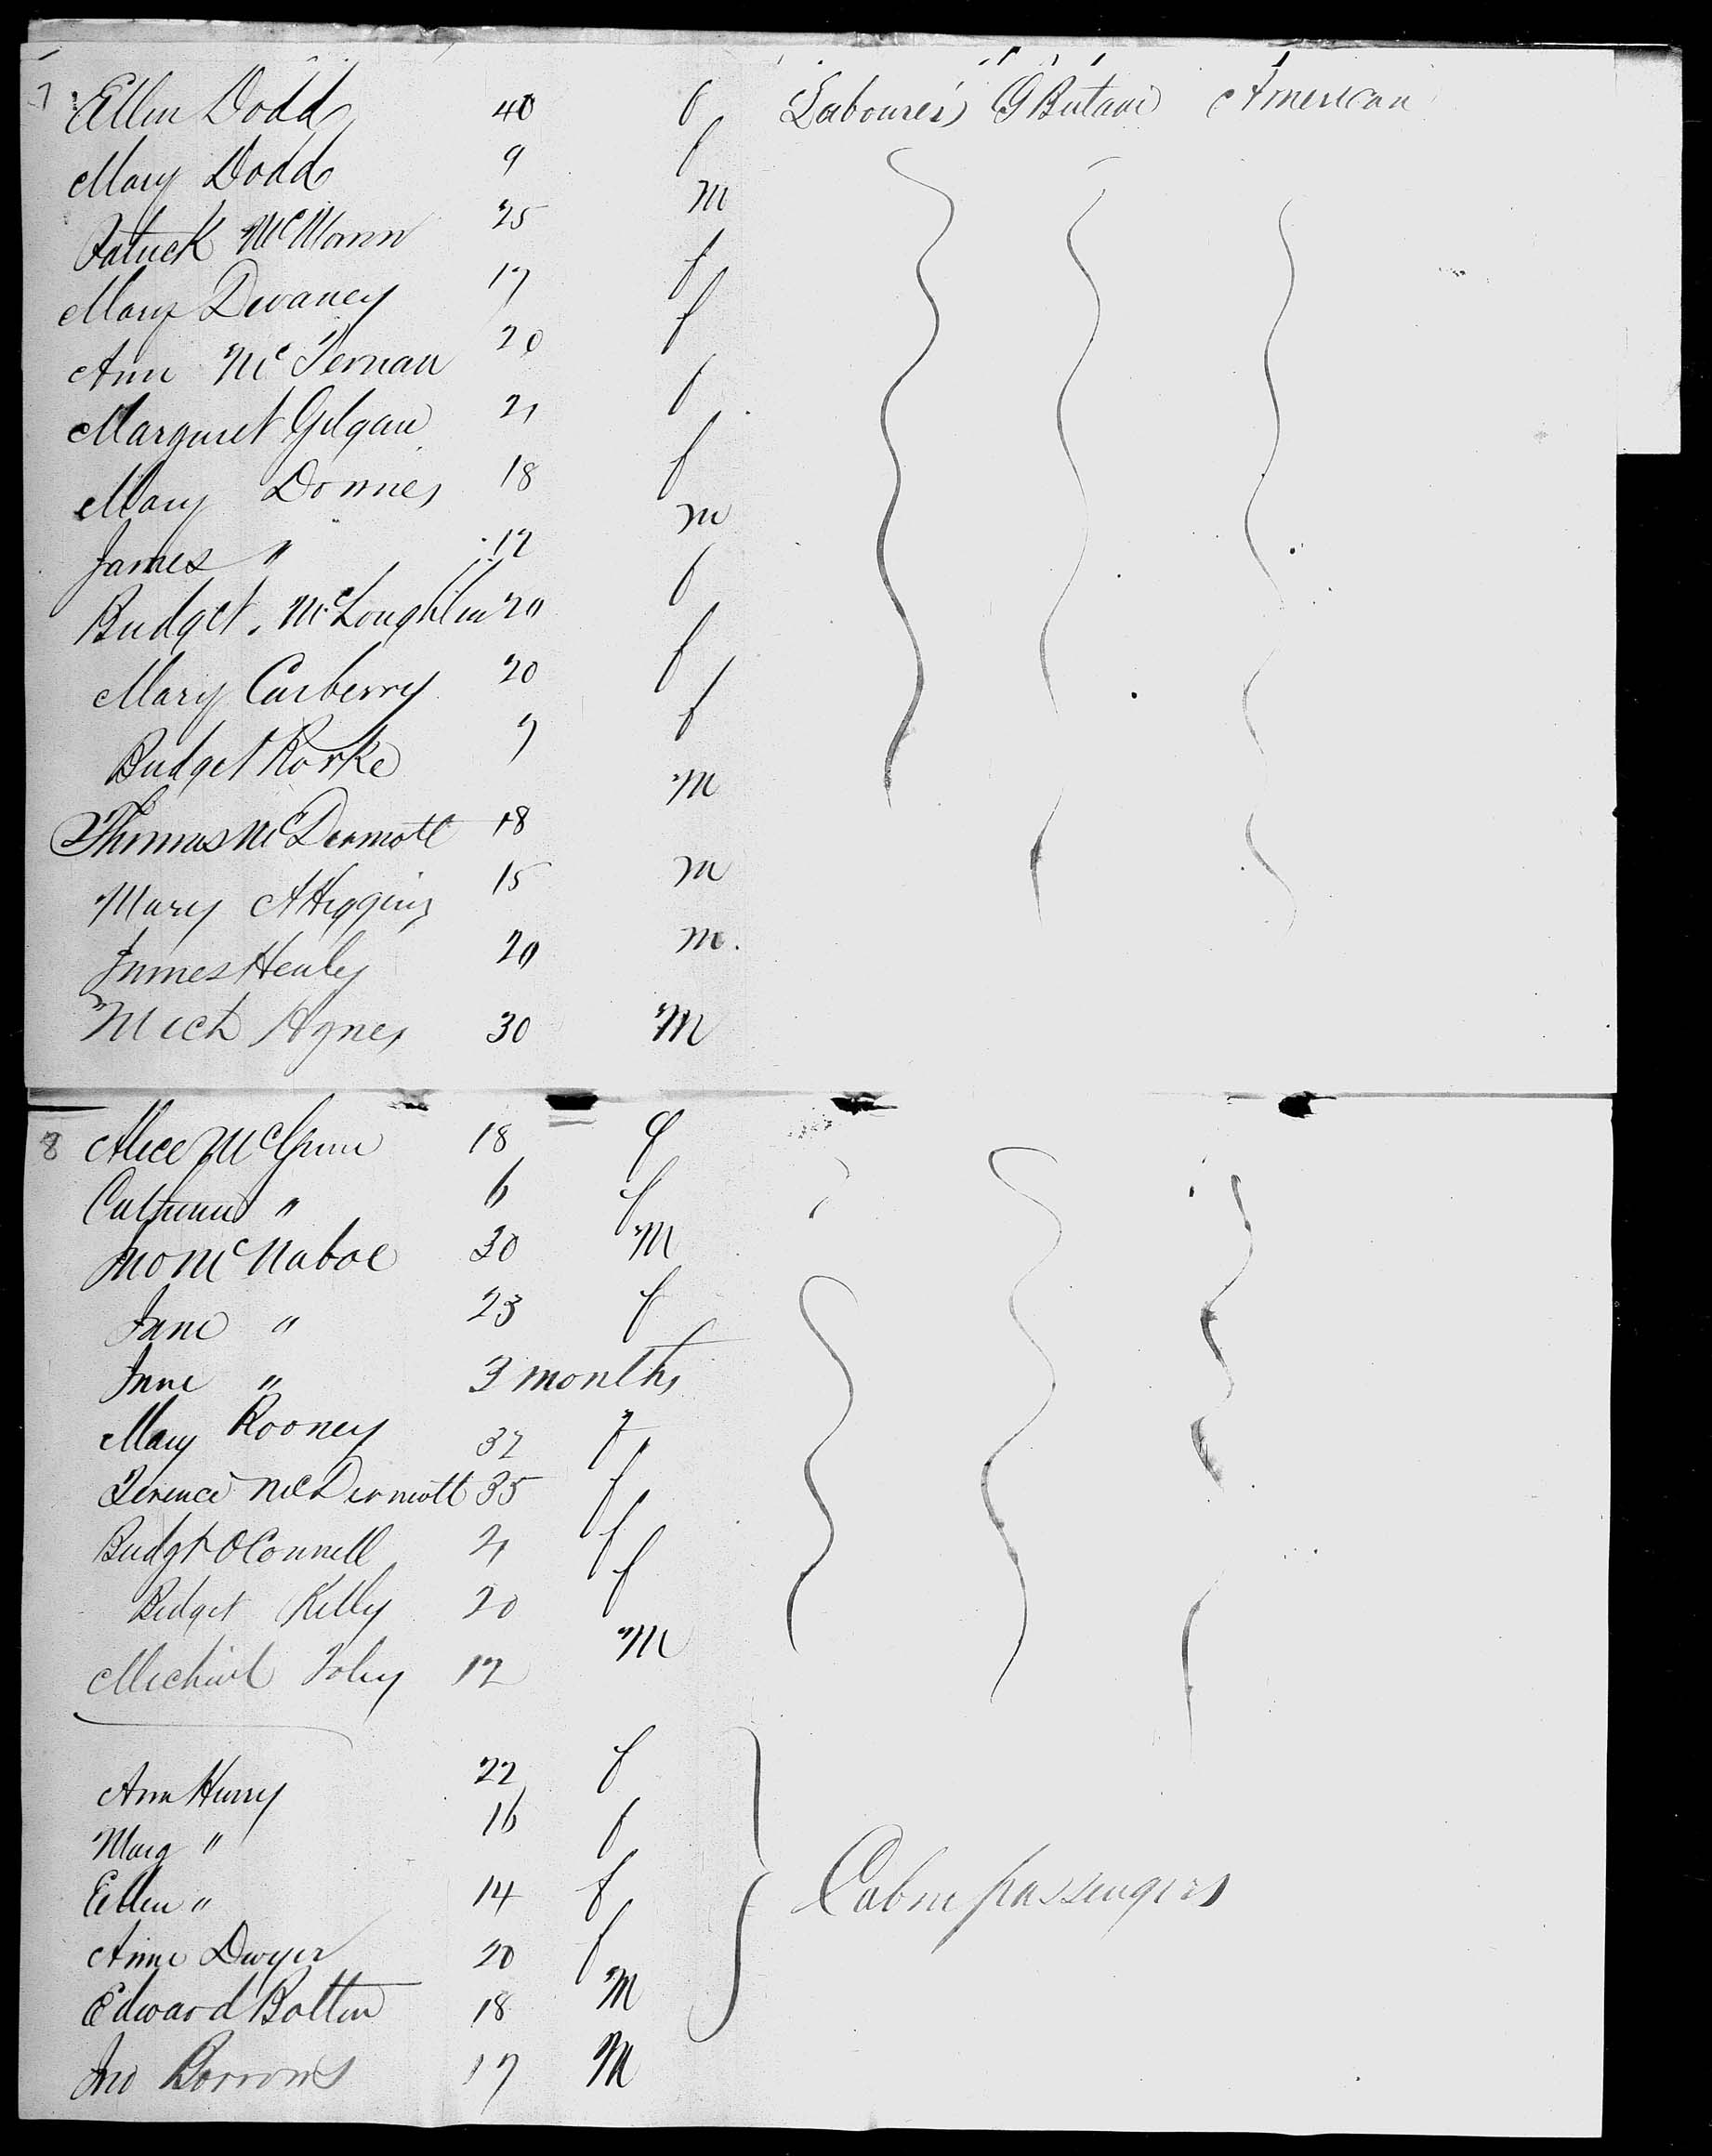 7 Ellen Dodd 40 f Labourers G Britain American
Mary Dodd 9 f
Patrick McMann 25 m
Mary Devaney 17 f
Ann McTernan 20 f
Margaret Gilgan 21 f
Mary Donnes 18 f
James " 12 m
Bridget McLoughlin 20 f
Mary Carberry 20 f
Bridget Rorke 7 f
Thomas McDermott 18 M
Mary A Higgins 15 m
James Healy 20 m.
Mich Agnes 30 M
8 Alice McGinn 18 f
" 6 f
Jno McNaboe 30 M
Jane " 23 f
Jane " 3 months
Mary Rooney 32 f
Terence McDermott 35 f
Bridgt OConnell 21 f
Bridget Kelly 20 f
Michael Foley 12 M
Ann Henry 22 f
Marg " 16 f
Ellen " 14 f
Cabin passengers
Anne Dwyer 20 f
Edward Bolton 18 M
Jno Borrows 17 M